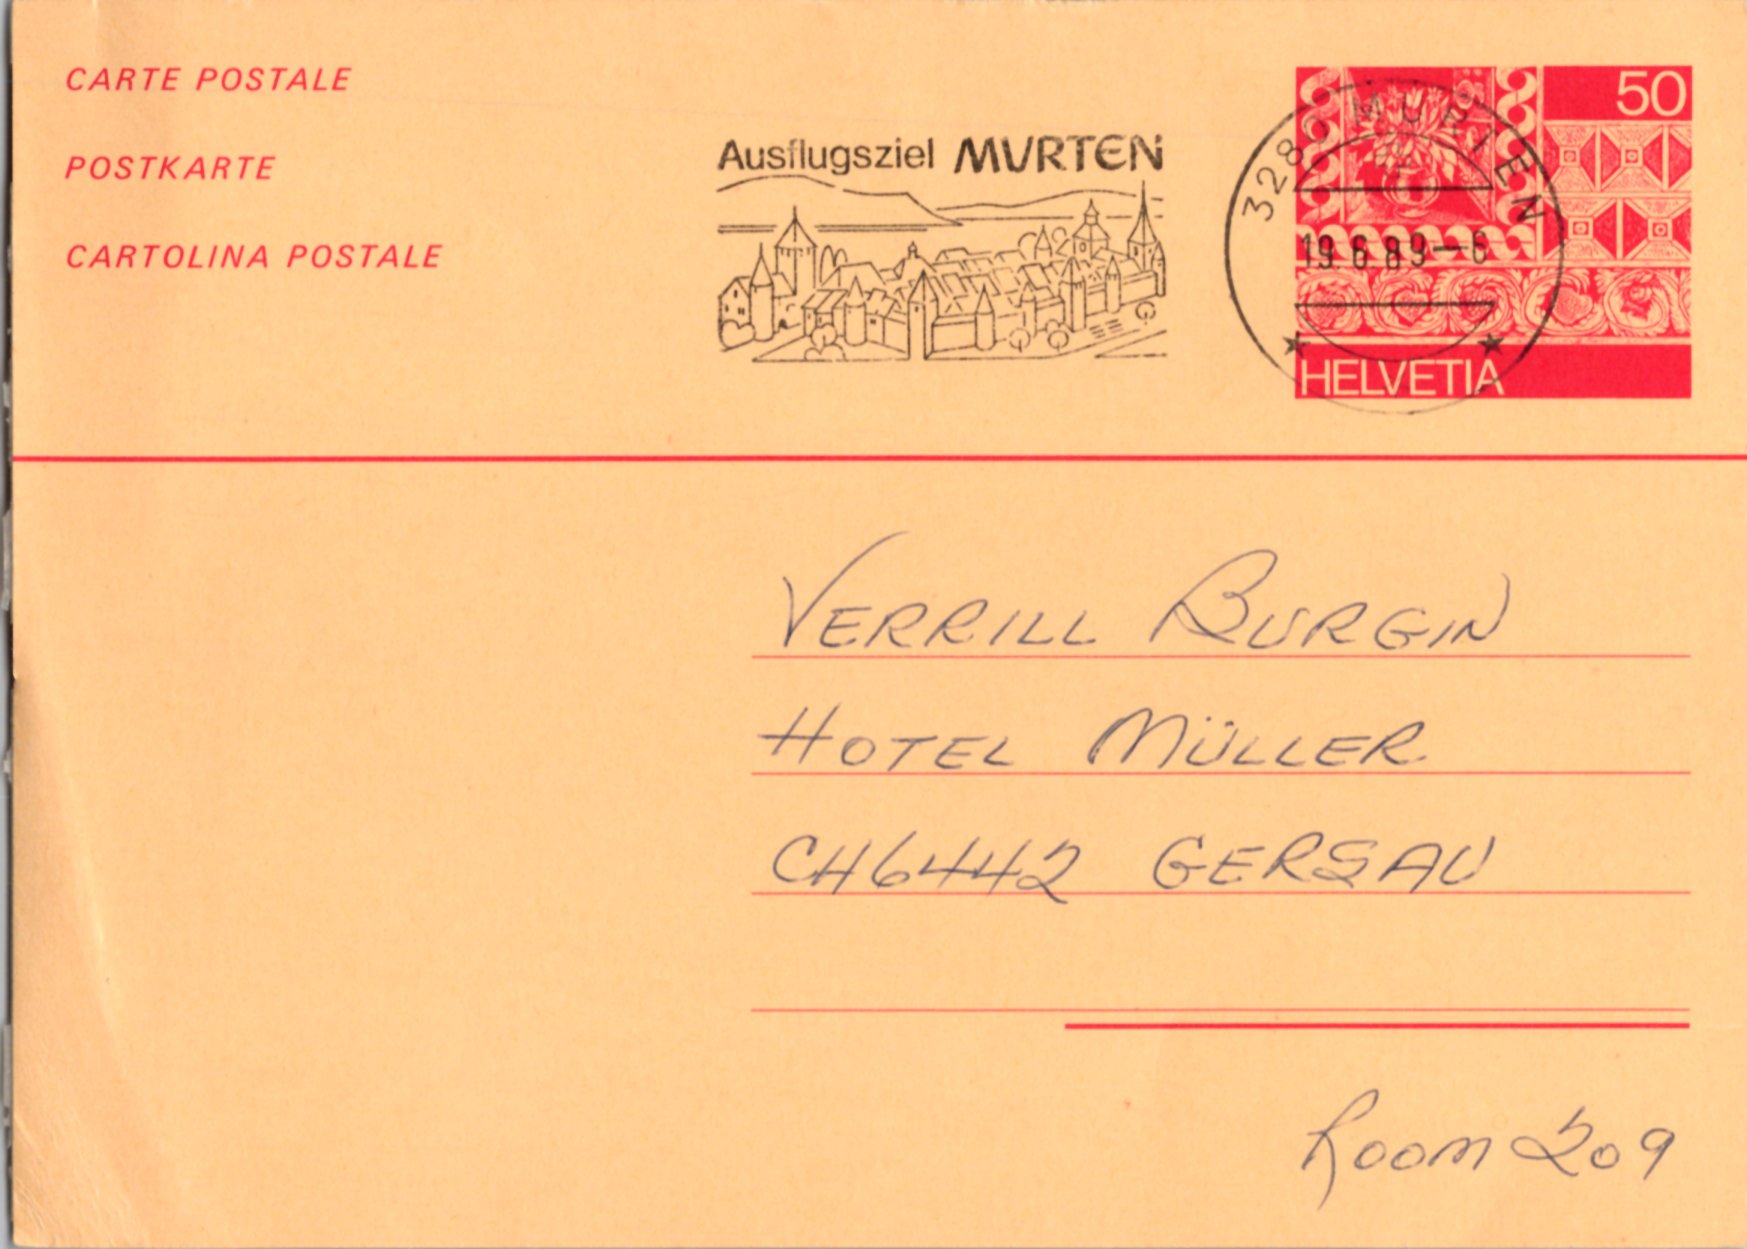 CARTE POSTALE
POSTKARTE
CARTOLINA POSTALE
Ausflugsziel MURTEN
50
3280 MURTEN
19.6.89–6
HELVETIA
VERRILL BURGIN
HOTEL MÜLLER
CH6442 GERSAU
Room 209